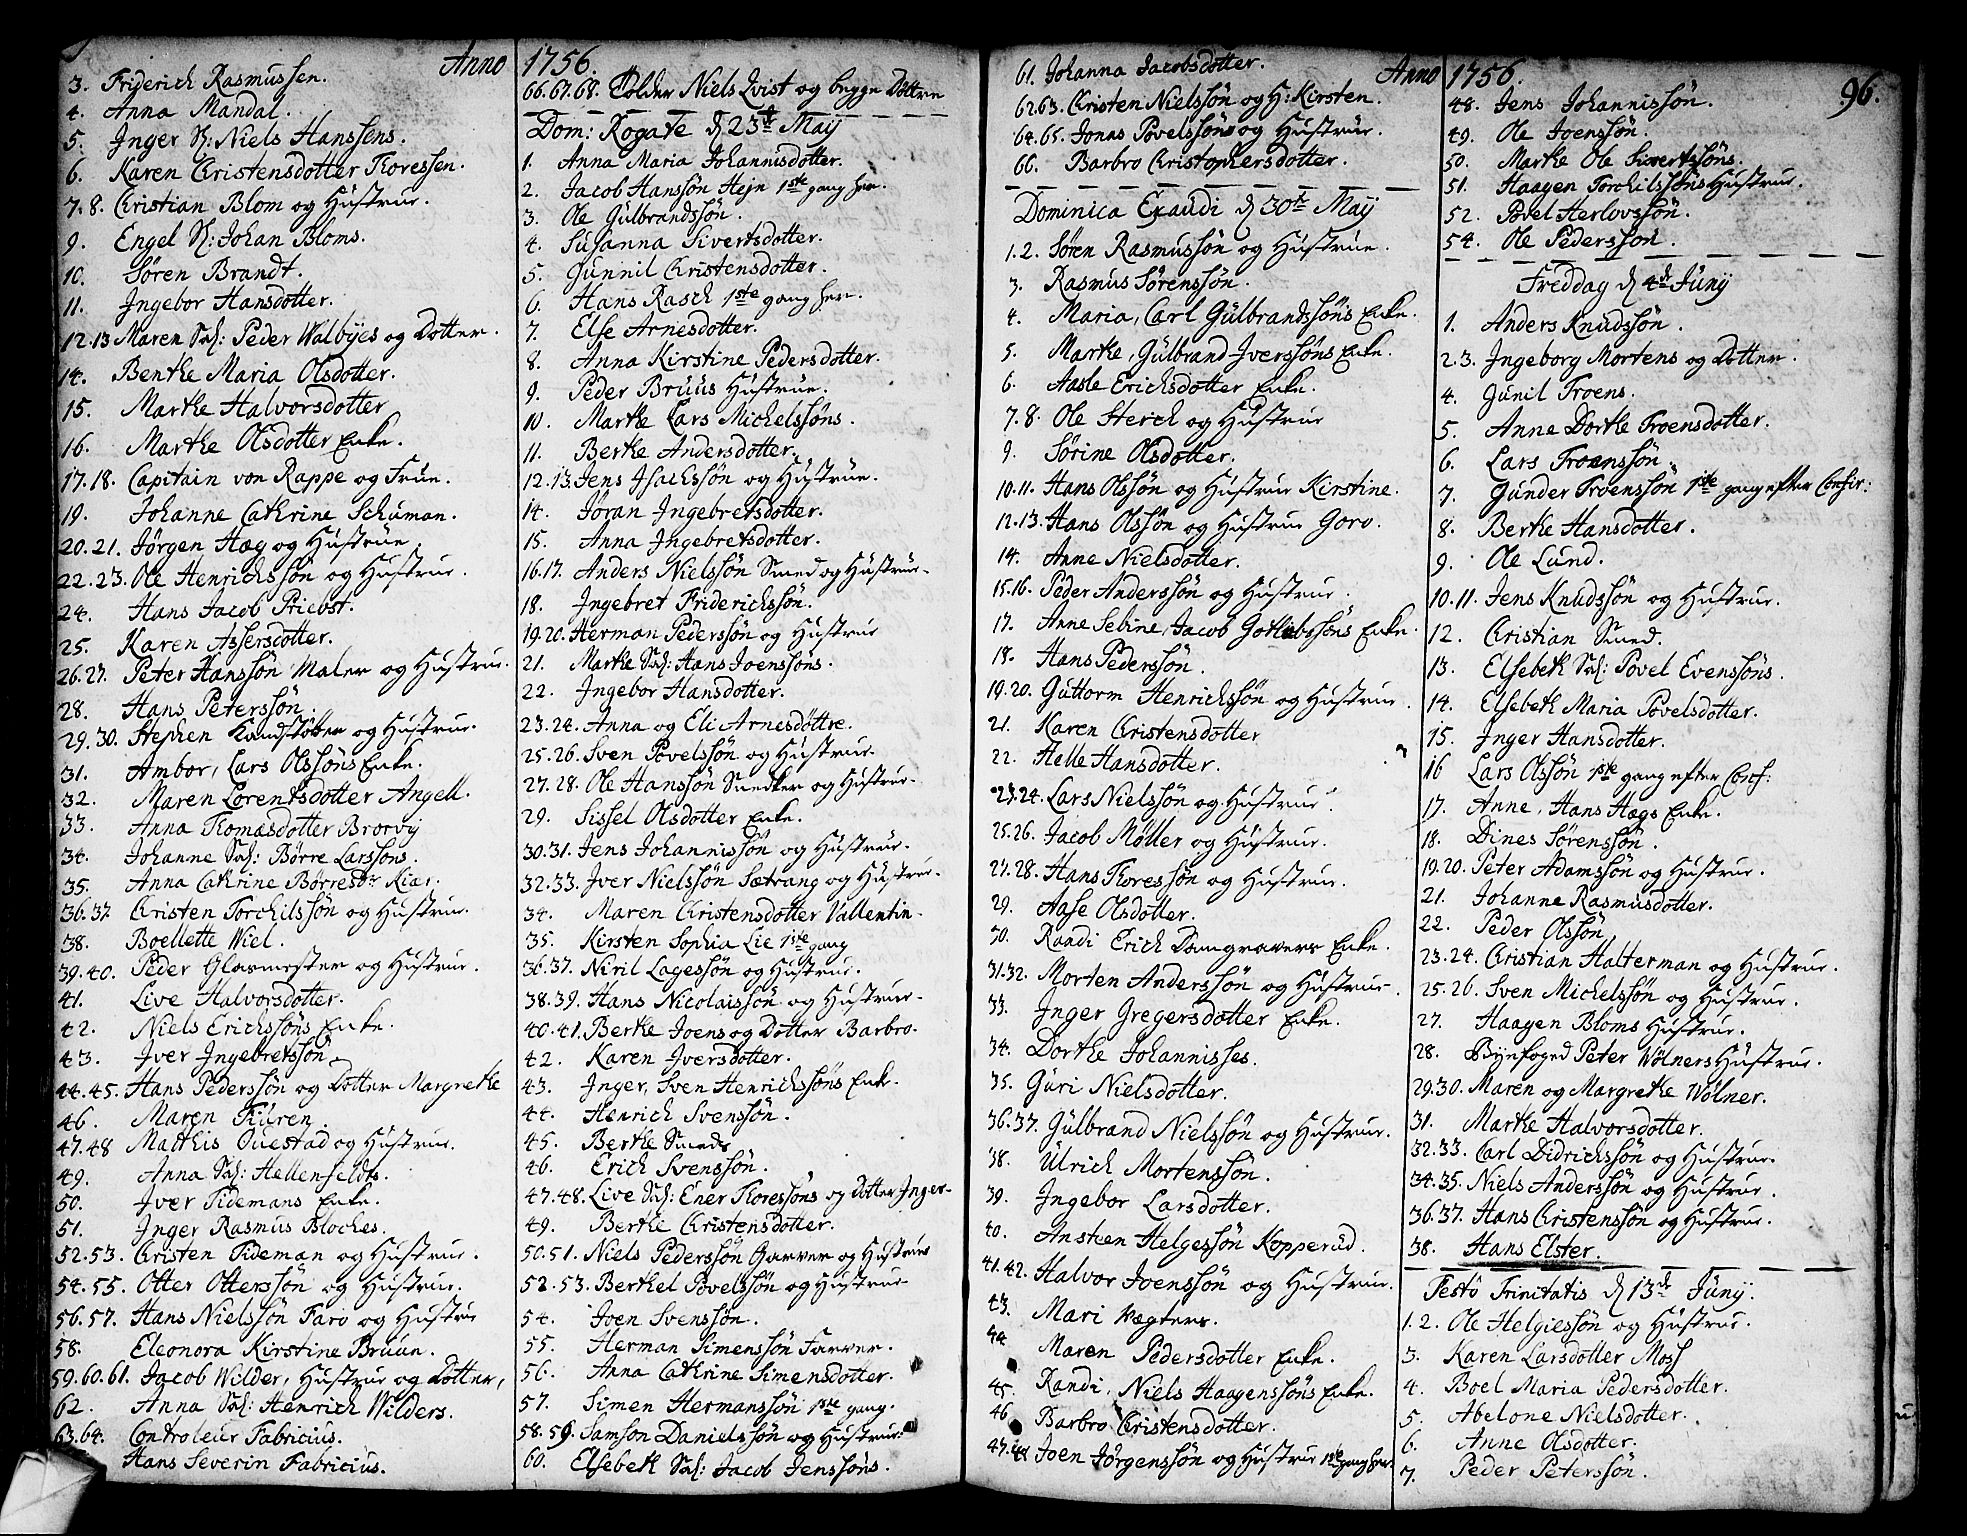 Anno
3. Friderich Rasmussen.
4. Anna Mandal.
5. Inger S: Niels Hanssens.
6. Karen Christensdotter Thoressen.
7.8. Christian Blom og Hustrue.
9. Engel S: Johan Bloms.
10. Søren Brandt.
11. Ingebor Hansdotter.
12.13 Maren Sal: Peder Walbyes og Dotter.
14. Benthe Maria Olsdotter.
15. Marthe Halvorsdotter
16. Marthe Olsdotter Enke.
17.18. Capitain von Rappe og Frue.
19. Johanne Cathrine Schuman.
20.21. Jørgen Hæg og Hustrue.
22.23. Ole Henrichssøn og Hustrue.
24. Hans Jacob Priebst.
25. Karen Assersdotter.
26.27. Peter Hanssøn Maler og Hustrue.
28. Hans Peterssøn.
29.30. Stephen Kandstøber og Hustrue.
31. Ambor, Lars Olssøns Enke.
32. Maren Lorentsdotter Angell.
33. Anna Thomasdotter Brorvy
34. Johanne Sal: Børre Larssøns.
35. Anna Cathrine Børresdr Kiær.
36.37. Christen Torchilssøn og Hustrue.
38. Boellette Wiel.
39.40. Peder Glasmester og Hustrue.
41. Live Halvorsdotter.
42. Niels Erichssøns Enke.
43. Iver Ingebretssøn
44.45. Hans Pederssøn og Dotter Margrethe
46. Maren Fiuren.
47.48 Mathis Ouestad og Hustrue.
49. Anna Sal: Hellenfeldts.
50. Iver Tidemans Enke.
51. Inger Rasmus Bloches.
52.53. Christen Tideman og Hustrue.
54.55. Otter Otterssøn og Hustrue.
56.57. Hans Nielssøn Farø og Hustrue
58. Eleonora Kirstine Bruun.
59.60.61. Jacob Wilder, Hustrue og Dotter,
62. Anna Sal: Henrich Wilders.
63.64. Controleur Fabricius.
Hans Severin Fabricius.
1756.
66.67.68. Colder Niels Qvist og begge Døttre
Dom: Rogate d 23de Maij
1. Anna Maria Johannisdotter.
2. Jacob Hanssøn Hejn 1ste gang her.
3. Ole Gülbrandssøn.
4. Susanna Sivertsdotter.
5. Gunnil Christensdotter.
6. Hans Rasch 1ste gang her.
7. Else Arnesdotter.
8. Anna Kirstine Pedersdotter.
9. Peder Bruus Hustrue.
10. Marthe Lars Michelssøns.
11. Berthe Andersdotter.
12.13. Jens Isachssøn og Hustrue.
14. Jøran Ingebretsdotter.
15. Anna Ingebretsdotter.
16.17. Anders Nielssøn Smed og Hustrue.
18. Ingebret Friderichssøn.
19.20. Herman Pederssøn og Hustrue
21. Marthe Sal: Hans Joenssøns.
22. Ingebor Hansdotter.
23.24. Anna og Eli Arnesdøttre.
25.26. Sven Povelssøn og Hustrue.
27.28. Ole Hanssøn Snedker og Hustrue.
29. Sissel Olsdotter Enke.
30.31. Jens Johannissøn og Hustrue.
32.33. Iver Nielssøn Sætrang og Hustrue.
34. Maren Christensdotter Vallentin.
35. Kirsten Sophia Lie 1ste gang
36.37. Niril Lagessøn og Hustrue.
38.39. Hans Nicolaissøn og Hustrue.
40.41. Berthe Joens og Dotter Barbro.
42. Karen Iversdotter.
43. Inger, Sven Henrichssøns Enk.
44. Henrich Svenssøn.
45. Berthe Smeds
46. Erich Svenssøn.
47.48. Live Sal: Ener Thoressøns og Dotter Inger.
49. Berthe Christensdotter.
50.51. Niels Pederssøn Garver og Hustrue
52.53. Berthel Povelssøn og Hustrue
54. Joen Svenssøn.
55. Herman Simenssøn Farver.
56. Anna Cathrine Simensdotter.
57. Simen Hermanssøn 1ste gang.
58.59. Samson Danielssøn og Hustrue.
60. Elsebeth Sal: Jacob Jenssøns.
Anno
61. Johanna Jacobsdotter.
62.63. Christen Nielssøn og H: Kirsten.
64.65. Jonas Povelssøns og Hustrue.
66. Barbro Christophersdotter.
Dominica Exaudi d 30te Maij
1.2. Søren Rasmussøn og Hustrue.
3. Rasmus Sørenssøn.
4. Maria, Carl Gülbrandssøns Enke.
5. Marthe, Gülbrand Iverssøns Enke.
6. Aasle Erichsdotter Enke.
7.8. Ole Sterch og Hustrue
9. Sørine Olsdotter.
10.11. Hans Olssøn og Hustrue Kirstine.
12.13. Hans Olssøn og Hustrue Goro.
14. Anne Nielsdotter.
15.16. Peder Anderssøn og Hustrue.
17. Anne Sebine, Jacob Gotliebssøns Enke.
18. Hans Pederssøn.
19.20. Guttorm Henrichssøn og Hustrue.
21. Karen Christensdotter
22. Helle Hansdotter.
23.24. Lars Nielssøn og Hustrue.
25.26. Jacob Møller og Hustrue.
27.28. Hans Thoressøn og Hustrue.
29. Aase Olsdotter.
30. Raadi Erich Damgravers Enke.
31.32. Morten Anderssøn og Hustrue.
33. Inger Gregersdotter Enke.
34. Dorthe Johannisses.
35. Guri Nielsdotter.
36.37. Gülbrand Nielssøn og Hustrue.
38. Ulrich Mortenssøn.
39. Ingebor Larsdotter.
40. Ansteen Helgessøn Kopperüd.
41.42. Halvor Joenssøn og Hustrue.
43. Mari Vægters.
44. Maren Pedersdotter Enke.
45. Randi, Niels Haagenssøns Enke.
46. Barbro Christensdotter.
47.48 Joen Jørgenssøn og Hustrue 1ste gang her.
1756.
96.
48. Jens Johannissøn.
49. Ole Joenssøn.
50. Marthe Ole Sivertssøns.
51. Haagen Torchilssøns Hustrue.
52. Povel Herlovssøn.
54. Ole Pederssøn.
Freddag d 4de Juny
1. Anders Knudssøn.
2.3. Ingeborg Mortens og Dotter.
4. Gunil Troens.
5. Anne Dorthe Troensdotter.
6. Lars Troenssøn.
7. Gunder Troenssøn 1ste gang efter Confir:
8. Berthe Hansdotter.
9. Ole Lund.
10.11. Jens Knudssøn og Hustrue.
12. Christian Smed.
13. Elsebeth Sal: Povel Evenssøns.
14. Elsebeth Maria Povelsdotter.
15. Inger Hansdotter.
16 Lars Olssøn 1ste gang efter Conf:
17. Anne, Hans Hægs Enke.
18. Dines Sørenssøn.
19.20. Peter Adamssøn og Hustrue.
21. Johanne Rasmusdotter.
22. Peder Olssøn
23.24. Christian Halterman og Hustrue.
25.26. Sven Michelssøn og Hustrue.
27. Haagen Bloms Hustrue.
28. Byefoged Peter Wölners Hustrue.
29.30. Maren og Margrethe Wölner.
31. Marthe Halvorsdotter.
32.33. Carl Didrichssøn og Hustrue.
34.35. Niels Anderssøn og Hustrue.
36.37. Hans Christenssøn og Hustrue.
38. Hans Elster.
Festo Trinitatis d 13de Juny.
1.2. Ole Helgiessøn og Hustrue.
3. Karen Larsdotter Moss
4. Boel Maria Pedersdotter.
5. Abelone Nielsdotter.
6. Anne Olsdotter.
7. Peder Peterssøn.